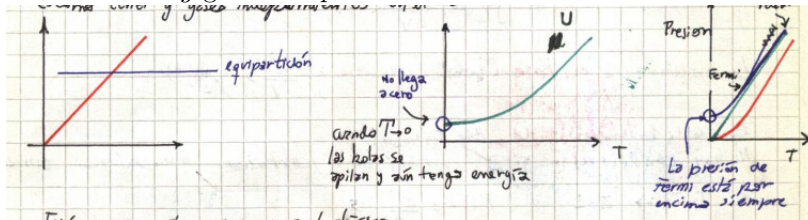 y gases
equipartición
U
No llega
a cero
cuando T→0
las bolas se
apilan y aún tenga energía
T
Presion
Fermi
T
La presión de
Fermi está por
encima siempre